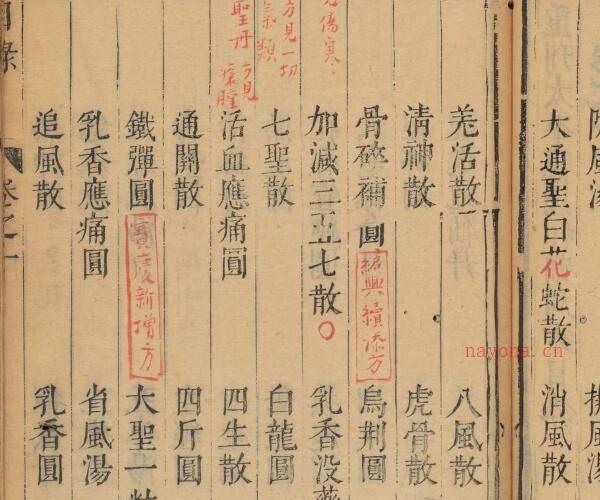 防風湯
排風湯
大通聖白花蛇散
消風散
羌活散
八風散
清神散
虎骨散
見傷寒、
骨碎補圓
紹興續添方
烏荆圓
方見一切
氣類
加減三五七散〇
乳香没藥
七聖散
白龍圓
聖丹方見
瘡腫
活血應痛圓
四生散
通關散
四斤圓
鐵彈圓
寶慶新增方
大聖一粒
乳香應痛圓
省風湯
追風散
乳香圓
目錄
卷之一
nayona.cn